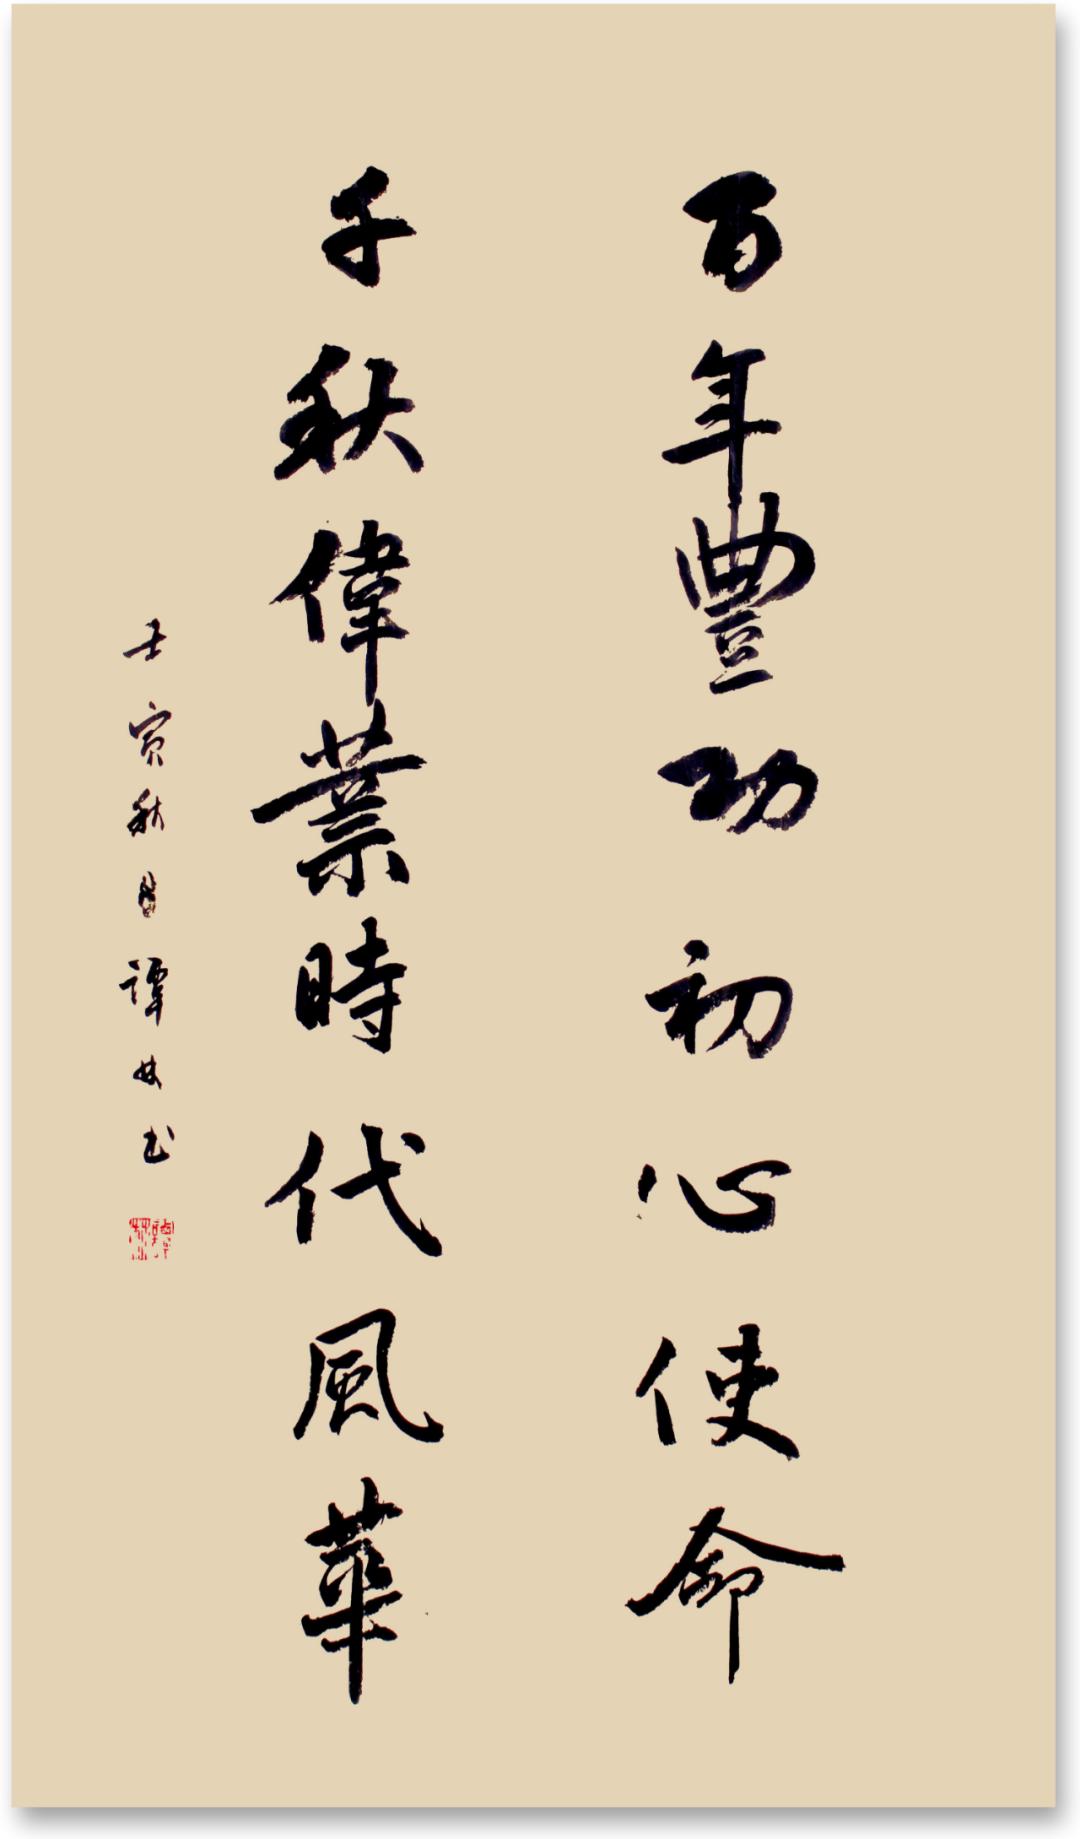 百年豐功初心使命
千秋偉業時代風華
壬寅秋月譚林書